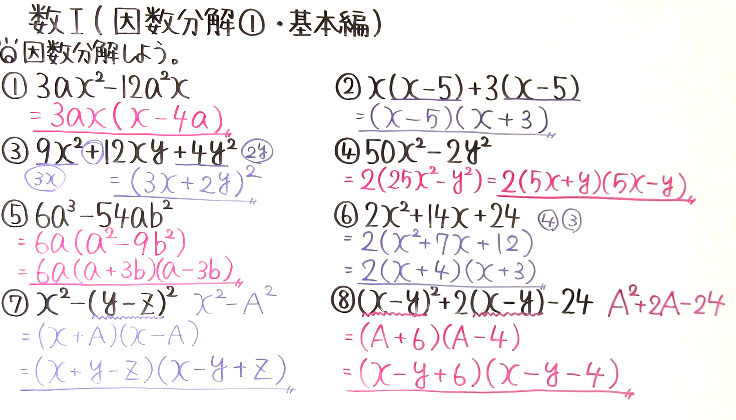 数I(因数分解①・基本編)
因数分解しよう。
① 3ax²-12a²x
= 3ax(x-4a)〃
② x(x-5)+3(x-5)
=(x-5)(x+3)〃
③ 9x²+12xy+4y² 2y
3x =(3x+2y)²〃
④ 50x²-2y²
= 2(25x²-y²)=2(5x+y)(5x-y)〃
⑤ 6a³-54ab²
= 6a(a²-9b²)
= 6a(a+3b)(a-3b)〃
⑥ 2x²+14x+24 ④ ③
= 2(x²+7x+12)
= 2(x+4)(x+3)〃
⑦ x²-(y-z)² x²-A²
=(x+A)(x-A)
=(x+y-z)(x-y+z)〃
⑧ (x-y)²+2(x-y)-24 A²+2A-24
=(A+6)(A-4)
=(x-y+6)(x-y-4)〃